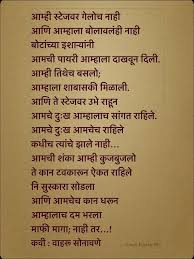 आम्ही स्टेजवर गेलोच नाही
आणि आम्हाला बोलावलंही नाही
बोटांच्या इशाऱ्यांनी
आमची पायरी आम्हाला दाखवून दिली.
आम्ही तिथेच बसलो;
आम्हाला शाबासकी मिळाली.
आणि ते स्टेजवर उभे राहून
आमचे दुःख आम्हालाच सांगत राहिले.
आमचे दुःख आमचेच राहिले
कधीच त्यांचे झाले नाही...
आमची शंका आम्ही कुजबुजलो
ते कान टवकारून ऐकत राहिले
नि सुस्कारा सोडला
आणि आमचेच कान धरून
आम्हालाच दम भरला
माफी मागा; नाही तर...!
कवी : वाहरू सोनावणे